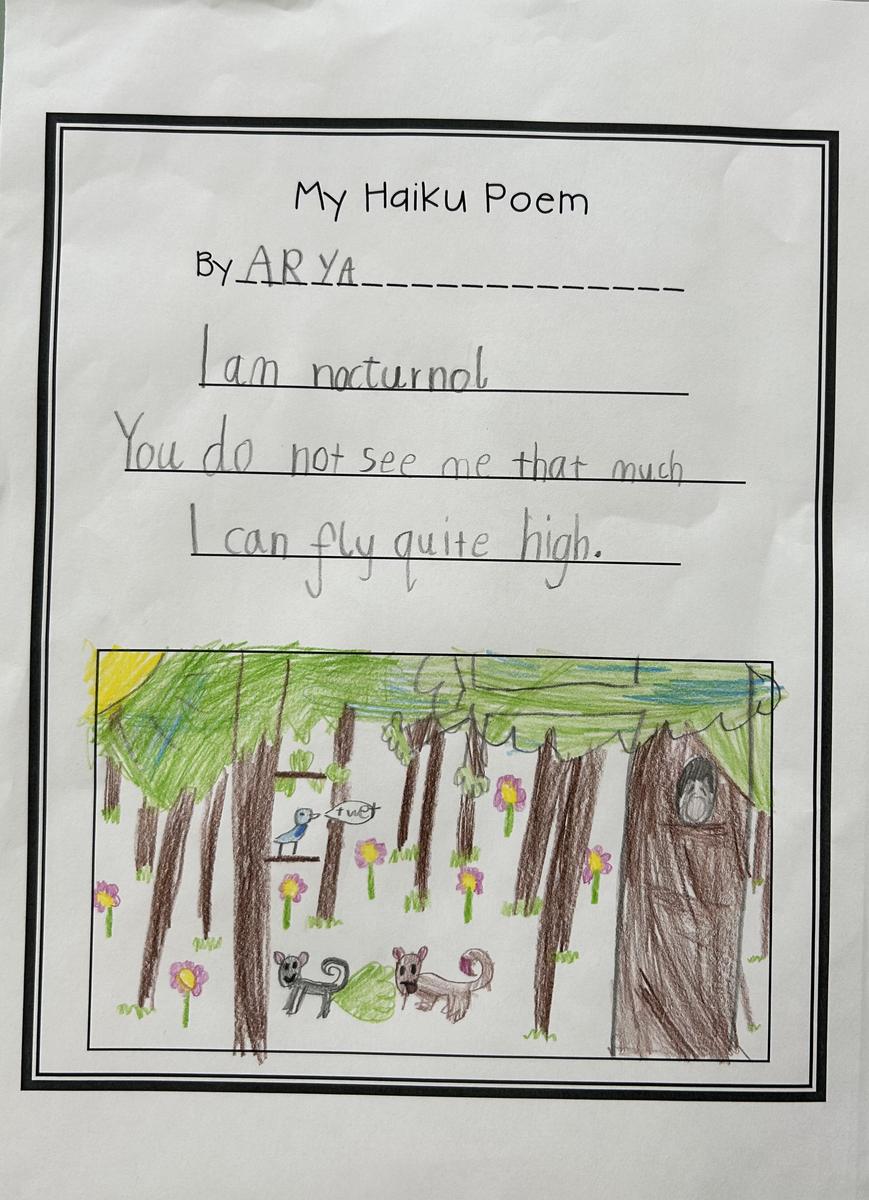 My Haiku Poem
By ARYA
I am nocturnol
You do not see me that much
I can fly quite high.
twet